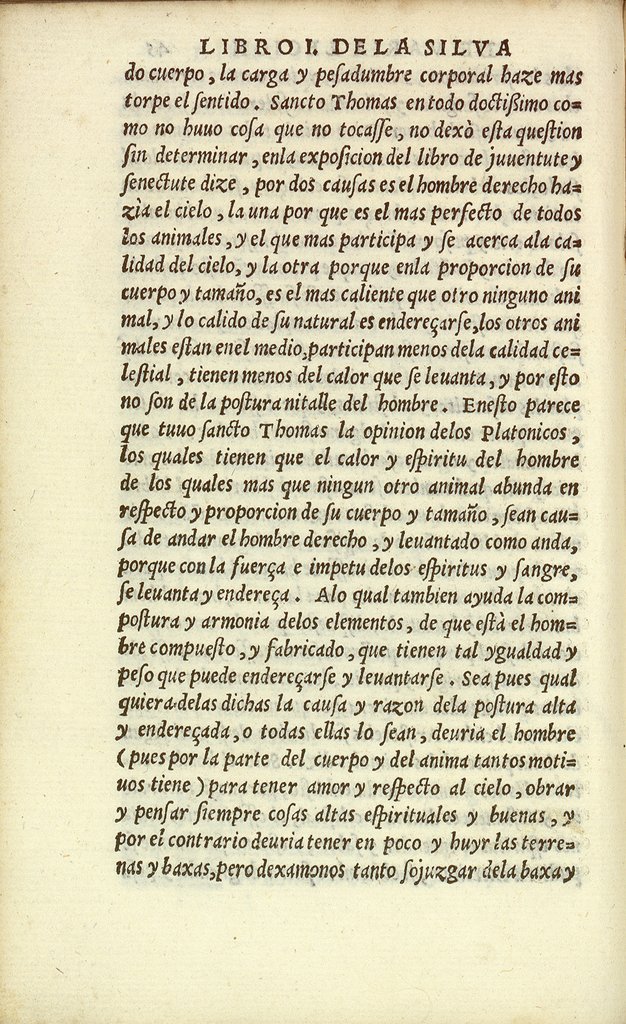 LIBRO I. DE LA SILVA
do cuerpo, la carga y peſadumbre corporal haze mas
torpe el ſentido. Sancto Thomas en todo doctiſsimo co=
mo no huuo coſa que no tocaſſe, no dexò eſta queſtion
ſin determinar, enla expoſicion del libro de juuentute y
ſenectute dize, por dos cauſas es el hombre derecho ha=
zìa el cielo, la una por que es el mas perfecto de todos
los animales, y el que mas participa y ſe acerca ala ca=
lidad del cielo, y la otra porque enla proporcion de ſu
cuerpo y tamaño, es el mas caliente que otro ninguno ani
mal, y lo calido de ſu natural es endereçarſe, los otros ani
males eſtan enel medio, participan menos dela calidad ce=
leſtial, tienen menos del calor que ſe leuanta, y por eſto
no ſon de la poſtura ni talle del hombre. Eneſto parece
que tuuo ſancto Thomas la opinion delos Platonicos,
los quales tienen que el calor y eſpiritu del hombre
de los quales mas que ningun otro animal abunda en
reſpecto y proporcion de ſu cuerpo y tamaño, ſean cau=
ſa de andar el hombre derecho, y leuantado como anda,
porque con la fuerça e impetu delos eſpiritus y ſangre,
ſe leuanta y endereça. Alo qual tambien ayuda la com=
poſtura y armonia delos elementos, de que eſtà el hom=
bre compueſto, y fabricado, que tienen tal ygualdad y
peſo que puede endereçarſe y leuantarſe. Sea pues qual
quiera delas dichas la cauſa y razon dela poſtura alta
y endereçada, o todas ellas lo ſean, deuria el hombre
(pues por la parte del cuerpo y del anima tantos moti=
uos tiene) para tener amor y reſpecto al cielo, obrar
y penſar ſiempre coſas altas eſpirituales y buenas, y
por el contrario deuria tener en poco y huyr las terre=
nas y baxas, pero dexamonos tanto ſojuzgar dela baxa y